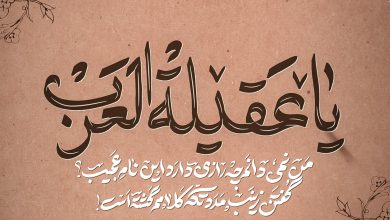 یا عقیلة العرب
من نمی دانم چه رازی دارد این نام عجیب؟
گفتن زینب مدد تکه کلامم گشته است!